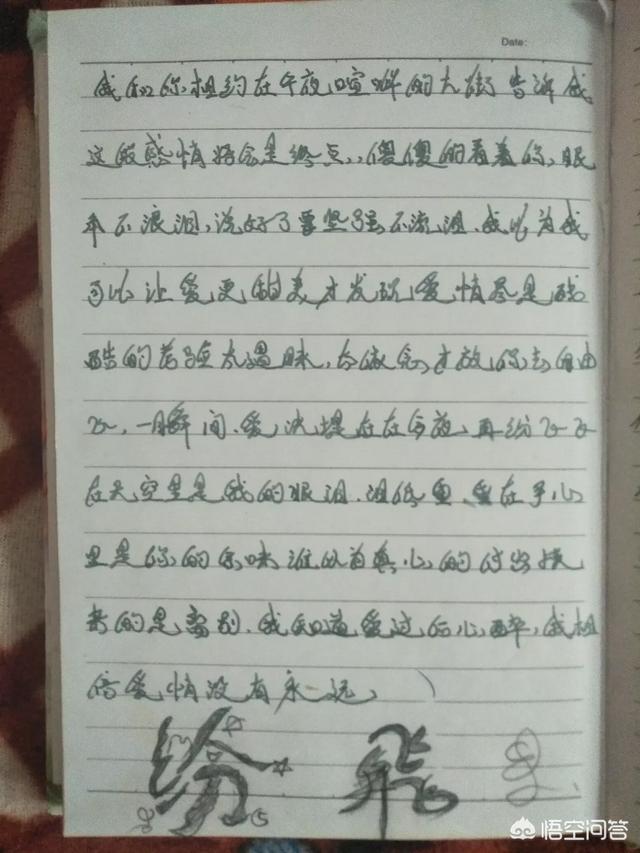 Date:
我和你相约在午夜喧哗的大街告诉我
这段感情将会是终点，傻傻的看着你，眼
不浪泪，说好了要坚强不流泪，我以为我
可以让爱更甜美才发现爱情尽是残
酷的考验太暧昧，太傲，才放你去自由
飞，一瞬间，爱，决堤在在今夜，再纷飞飞
在天空里是我的眼泪，泪低垂，垂在手心
里是你的余味谁以为真心的付出换
来的是离别，我知道爱过后心醉，我相
信爱情没有永远
纷飞
悟空问答